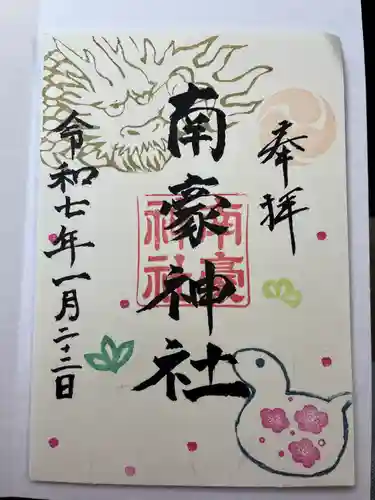 奉拝
南豪神社
南豪神社
令和七年一月二十二日